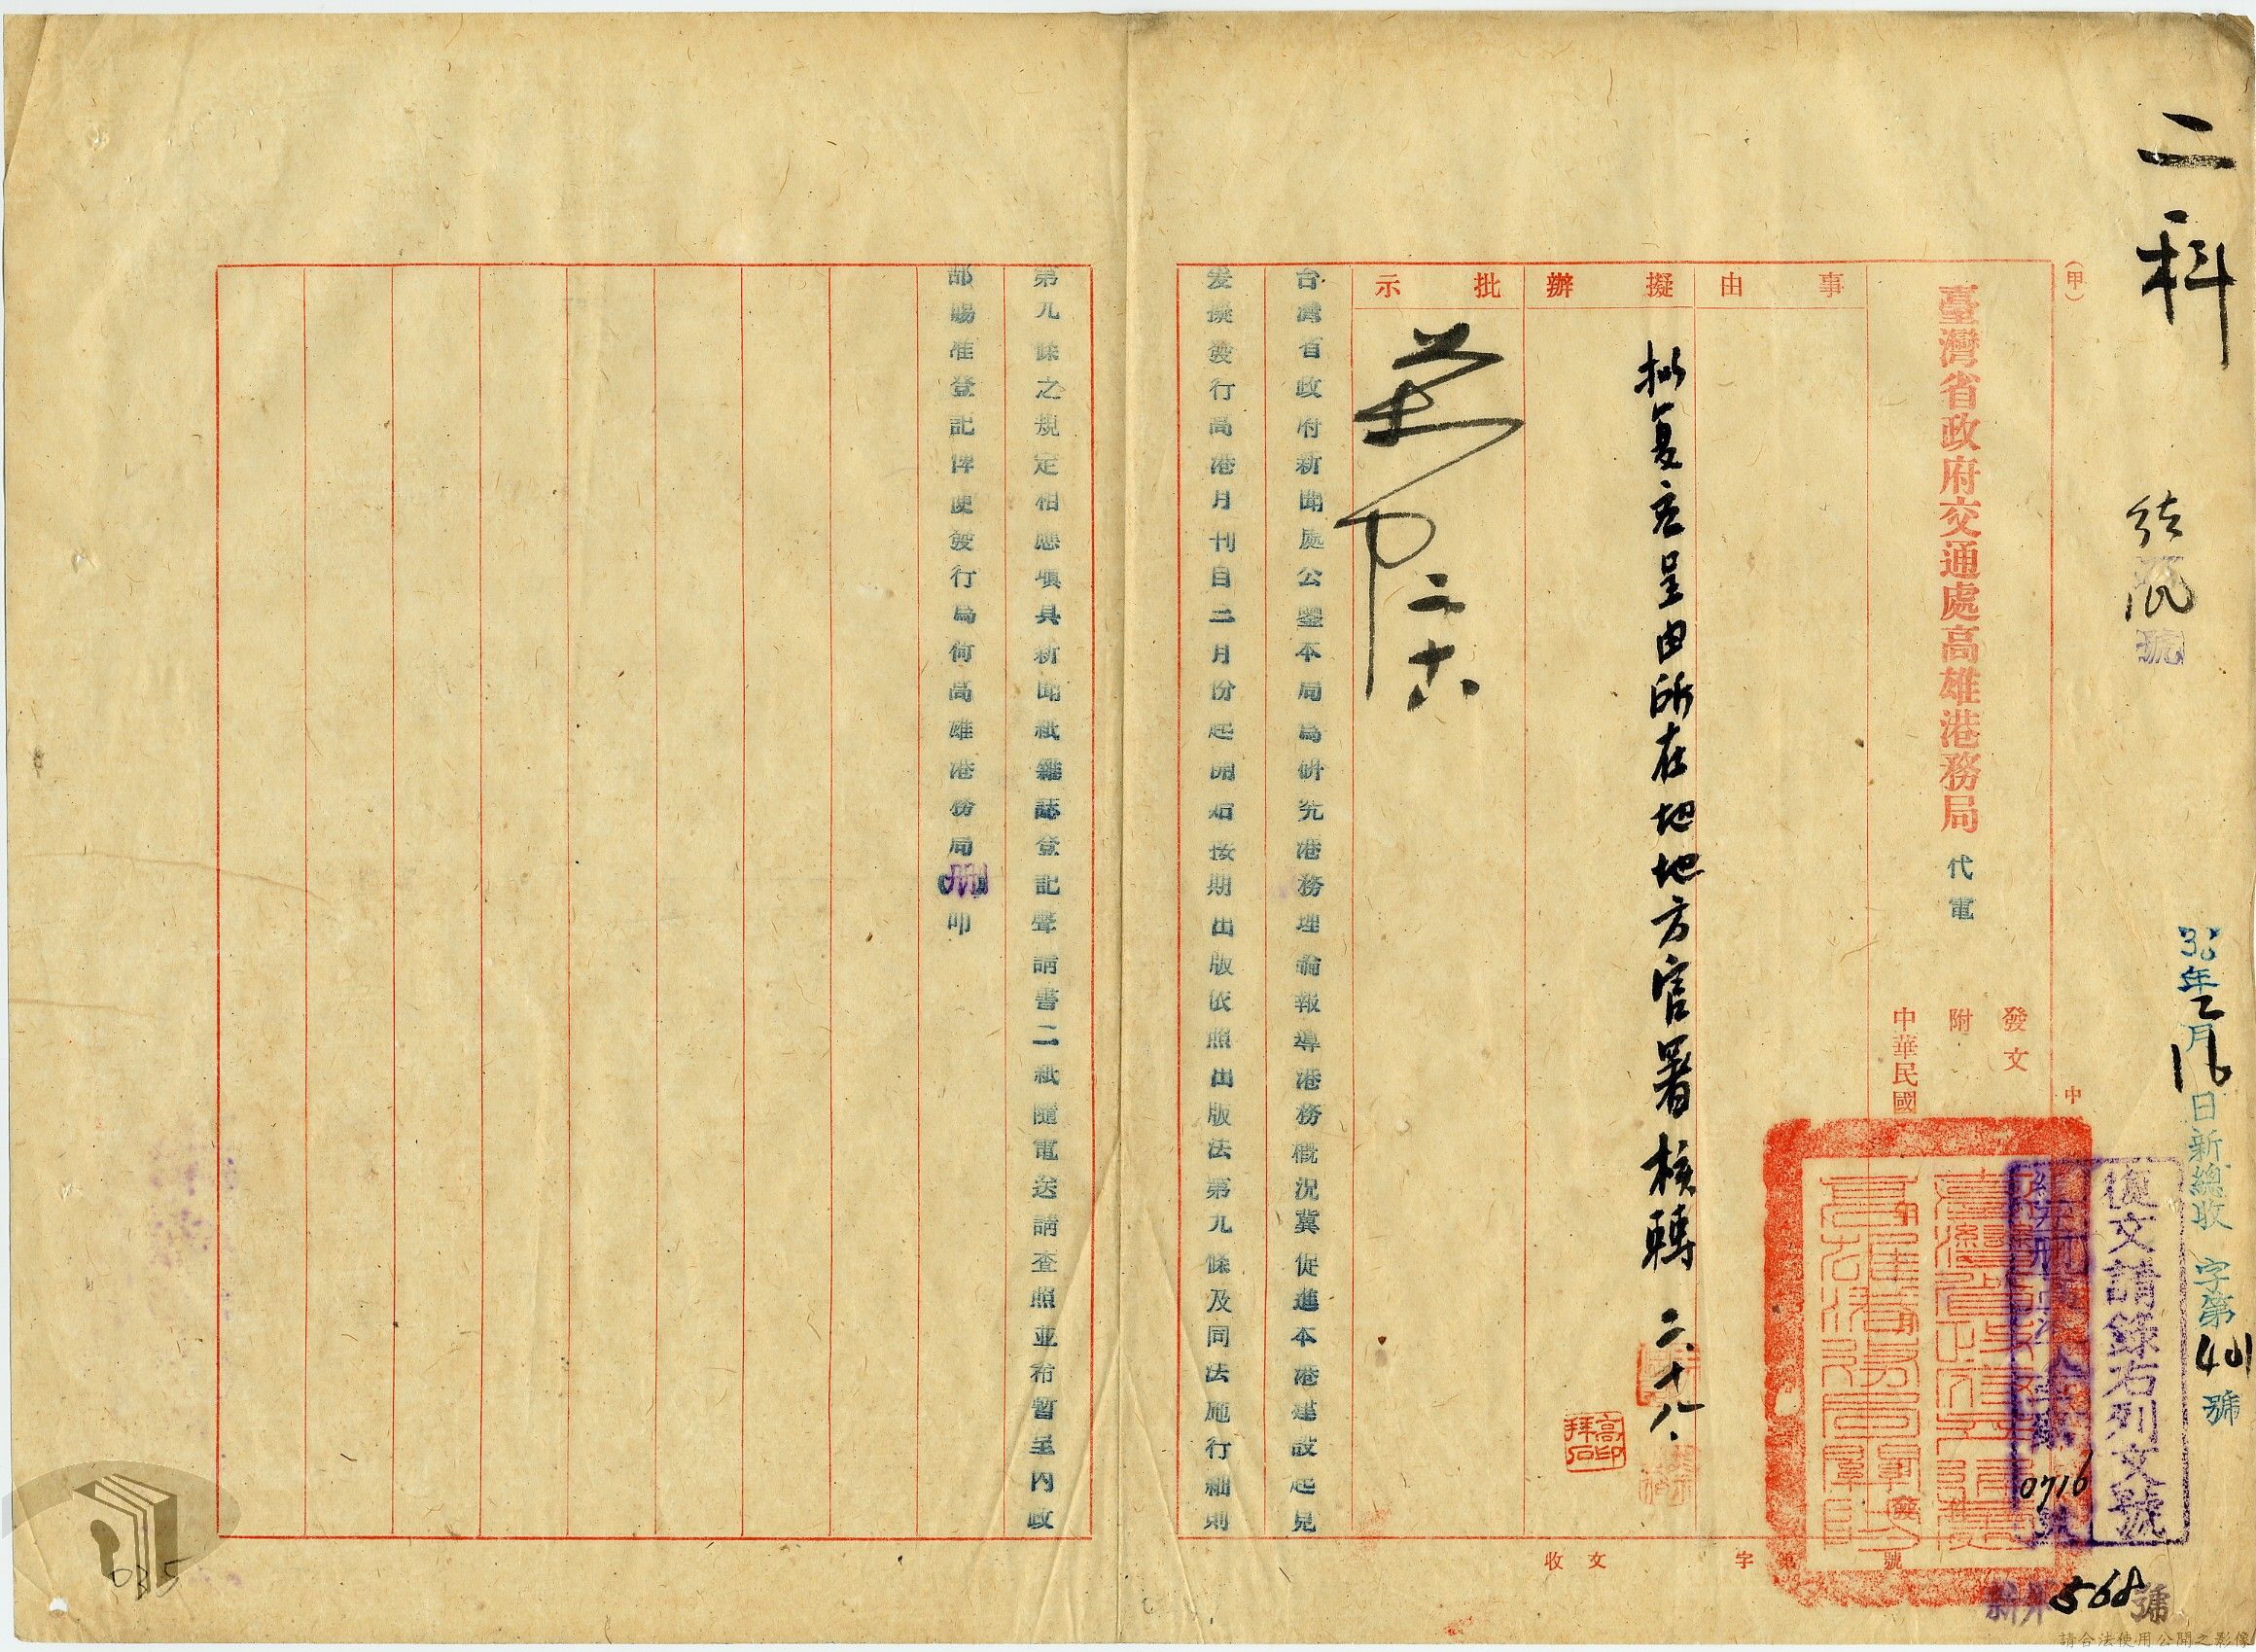 二科
(甲)
臺灣省政府交通處高雄港務局 代電
發文
附
中華民國
36年2月16日新總收 字第401號
復文請錄右列文號
0716
568號
事由
擬辦
批示
拟复应呈由所在地地方官署核轉 二.十八.
二十八
台灣省政府新聞處公鑒本局為研究港務理論報導港務概況冀促進本港建設起見
爰撰發行高港月刊自二月份起開始按期出版依照出版法第九條及同法施行細則
第九條之規定相應填具新聞紙雜誌登記聲請書二紙隨電送請查照並希暫呈內政
部賜准登記俾便發行局何高雄港務局刪印
收文 字第 號
035
請合法使用公開之影像